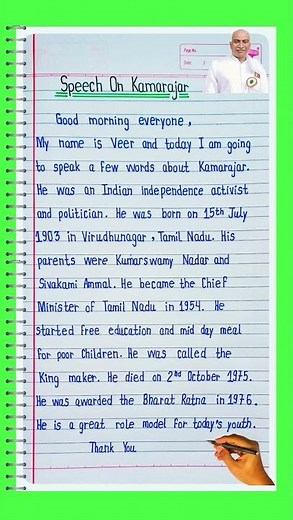 Page No.
Date:
Speech On Kamarajar
Good morning everyone,
My name is Veer and today I am going
to speak a few words about Kamarajar.
He was an Indian independence activist
and politician. He was born on 15th July
1903 in Virudhunagar, Tamil Nadu. His
parents were Kumarswamy Nadar and
Sivakami Ammal. He became the Chief
Minister of Tamil Nadu in 1954. He
started free education and mid day meal
for poor Children. He was called the
King maker. He died on 2nd October 1975.
He was awarded the Bharat Ratna in 1976.
He is a great role model for today's youth.
Thank You